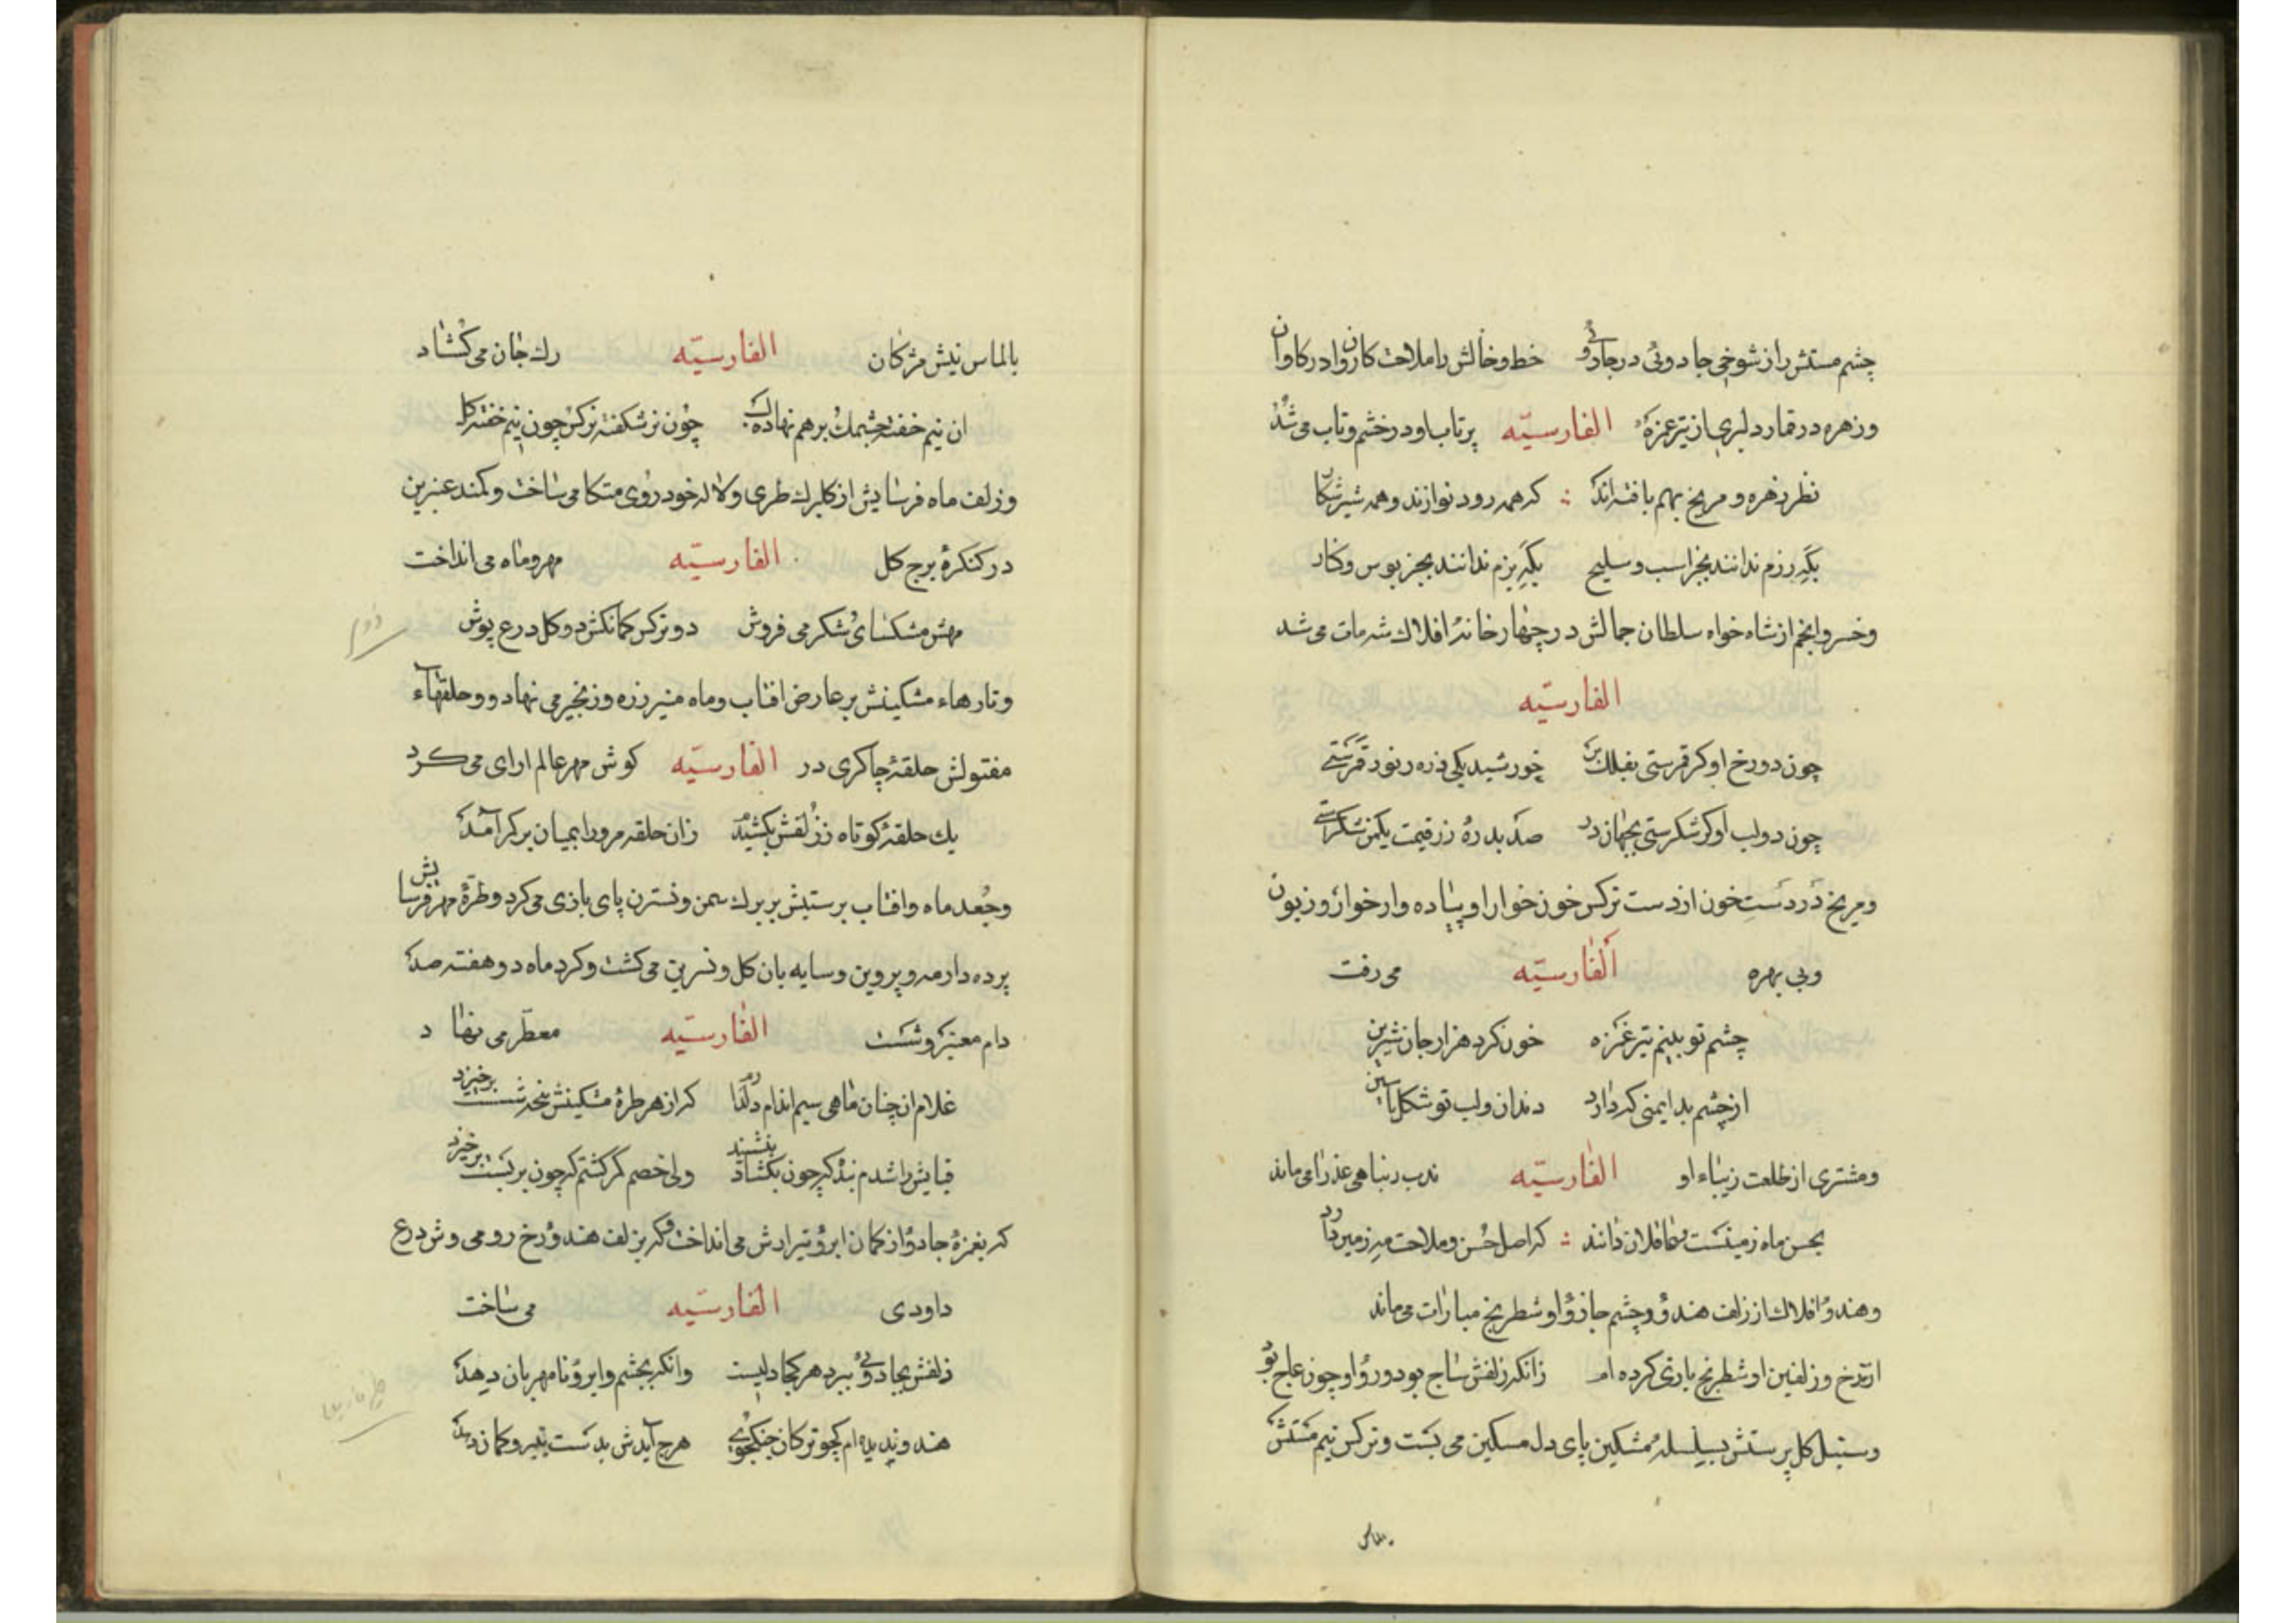 چشم مستش را از شوخی جادوئی در جادوئی و خط و خالش را ملاحت کاروان در کاروان
و زهره در قمار دلبری از تیر غمزهٔ الفارسیّه پر تاب او در خشم و تاب می شد
نظر زهره و مریخ بهم یافته‌اند که همه رود نوازند و همه شیر شکار
بگه رزم ندانند بجز اسب و سلیح بگه بزم ندانند بجز بوس و کنار
و خسرو انجم از شاه خواه سلطان جمالش در چهار خانهٔ افلاک شه مات می شد
الفارسیّه
چون دو رخ او کر قمرستی بفلک بر خورشید یکی ذره ز نور قمرستی
چون دو لب او کر شکرستی بجهان در صد بدرهٔ زر قیمت یکمن شکرستی
و مریخ در دست خون از دست نرکس خون خوار او پیاده وار خوار و زبون
و بی بهره الفارسیّه می رفت
چشم تو بنیم تیر غمزه خون کرد هزار جان شیرین
از چشم بد ایمنی که دارد دندان و لب تو شکل یاسین
و مشتری از طلعت زیباء او الفارسیّه ندب رنباهی عذرا می ماند
بحسن ماه زمینست و عاقلان دانند که اصل حسن و ملاحت مه زمین دارد
و هندؤ افلاک از زلف هندو و چشم جادؤ او شطرنج مبارات می ماند
از رخ و زلفین او شطرنج بازی کرده ام زانکه زلفش ساج بود و رؤ او چون عاج بود
و سنبل کل پرستش بسلسلهٔ مشکین پای دل مسکین می بست و نرکس نیم مستش
بالماس
بالماس نیش مژکان الفارسیّه رک جان می کشاد
ان نیم خفته چشمک بر هم نهاده چون نرشکفته نرکس چون نیم خفته
و زلف ماه فرسایش از کلبرک طری و لاله خود روی متکا می ساخت و کمند عنبرین
در کنکرهٔ برج کل الفارسیّه مهر و ماه می انداخت
مهش مشکسای شکر می فروش دو نرکس کمانکش دو کل درع پوش
و تارهاء مشکینش بر عارض افتاب و ماه منیر زره و زنجیر می نهاد و و حلقهاء
مفتولش حلقهٔ چاکری در الفارسیّه کوش مهر عالم ارای می کرد
یک حلقهٔ کوتاه ز زلفش بکشید زان حلقه مرو را بمیان بر کمر آمد
و جعد ماه و افتاب پرستیش بر برک سمن و نسترن پای بازی می کرد و طرهٔ مهر فرسایش
پرده دار مه و پروین و سایه بان کل و نسرین می کشت و کرد ماه دو هفته صد
دام معنبر و شست الفارسیّه معطّر می نهاد
غلام ان چنان ماهی سیم اندام دلدارم که از هر طرهٔ مشکینش برخیزد
قبایش را شدم بنده که چون بکشاد بنشیند ولی خصم کمر کشتم که چون بر بست برخیزد
که بغمزهٔ جادو از کمان ابرو تیر ارش می انداخت و که بزلف هندو رخ رومی وش درع
داودی الفارسیّه می ساخت
زلفش بجادوئی ببرد هر کجا دلیست وانکه بچشم و ابرؤ نامهربان دهد
هندو ندیده ام کچو ترکان جنکجوی هرچ آیدش بدست بتیر و کمان دهد